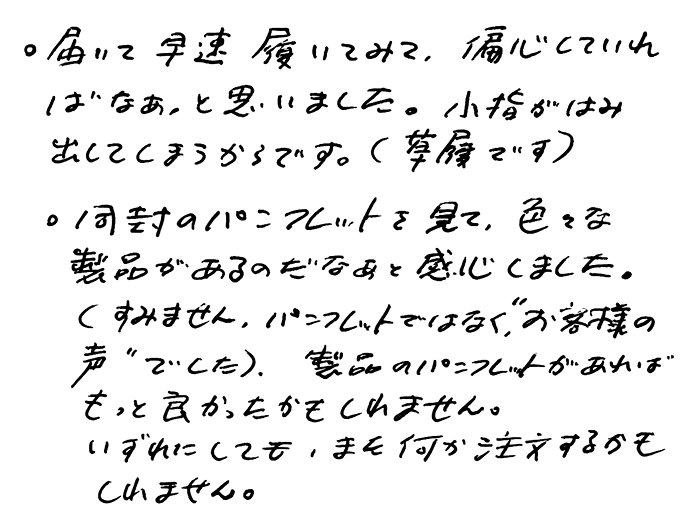 ○届いて早速履いてみて、偏心していれ
ばなぁ、と思いました。小指がはみ
出してしまうからです。(草履です)
○同封のパンフレットを見て、色々な
製品があるのだなぁと感心しました。
(すみません、パンフレットではなく、"お客様の
声"でした)、製品のパンフレットがあれば
もっと良かったかもしれません。
いずれにしても、また何か注文するかも
しれません。